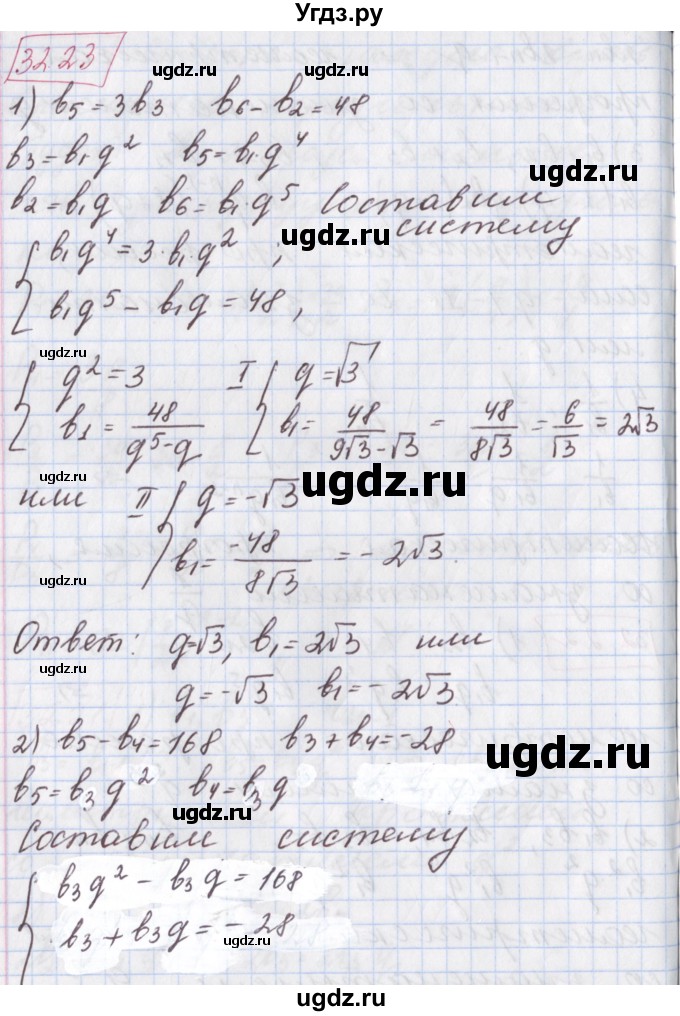 Угдз.ру
32.23
ugdz.ru
1) b5 = 3b3 b6 - b2 = 48
ugdz.ru
b3 = b1q² b5 = b1·q⁴
ugdz.ru
b2 = b1q b6 = b1·q⁵ Составим
систему
ugdz.ru
{ b1q⁴ = 3·b1·q² ;
b1q⁵ - b1q = 48,
ugdz.ru
{ q² = 3 I { q = √3
b1 = 48/(q⁵-q) b1 = 48/(9√3-√3) = 48/(8√3) = 6/√3 = 2√3
ugdz.ru
ugdz.ru
или II { q = -√3
b1 = -48/(8√3) = -2√3.
ugdz.ru
Ответ: q=√3, b1 = 2√3 или
ugdz.ru
q = -√3 b1 = -2√3
2) b5 - b4 = 168 b3 + b4 = -28
ugdz.ru
b5 = b3q² b4 = b3q
ugdz.ru
Составим систему
{ b3q² - b3q = 168
b3 + b3q = -28
ugdz.ru
ugdz.ru